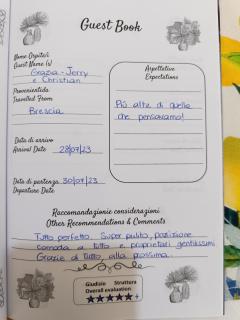 Guest Book
Nome Ospite/i
Guest Name (s)
Grazia - Jerry
e Christian
Provenienza
Travelled From
Brescia
Aspettative
Expectations
Più alte di quelle
che pensavamo!
Data di arrivo
Arrival Date 28/07/23
Data di partenza 30/07/23
Departure Date
Raccomandazionie considerazioni
Other Recommendations & Comments
Tutto perfetto. Super pulito, posizione
comoda a tutto e proprietari gentilissimi
Grazie di tutto alla prossima.
Giudizio Struttura
Overall evaluation